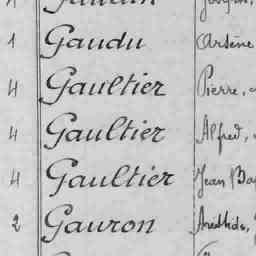 1 Gaudu Arsène
4 Gaultier Pierre,
4 Gaultier Alfred,
4 Gaultier Jean
2 Gauron Aristide,